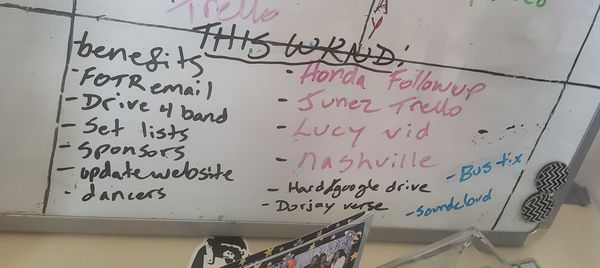 Trello
A
Y
THIS WKND:
benefits
- FOTR email
- Drive 4 band
- Set lists
- Sponsors
- update website
- dancers
- Honda Followup
- Junez Trello
- Lucy vid
- nashville
- Hard/google drive
- Dorjay verse
- Bus tix
- Soundcloud